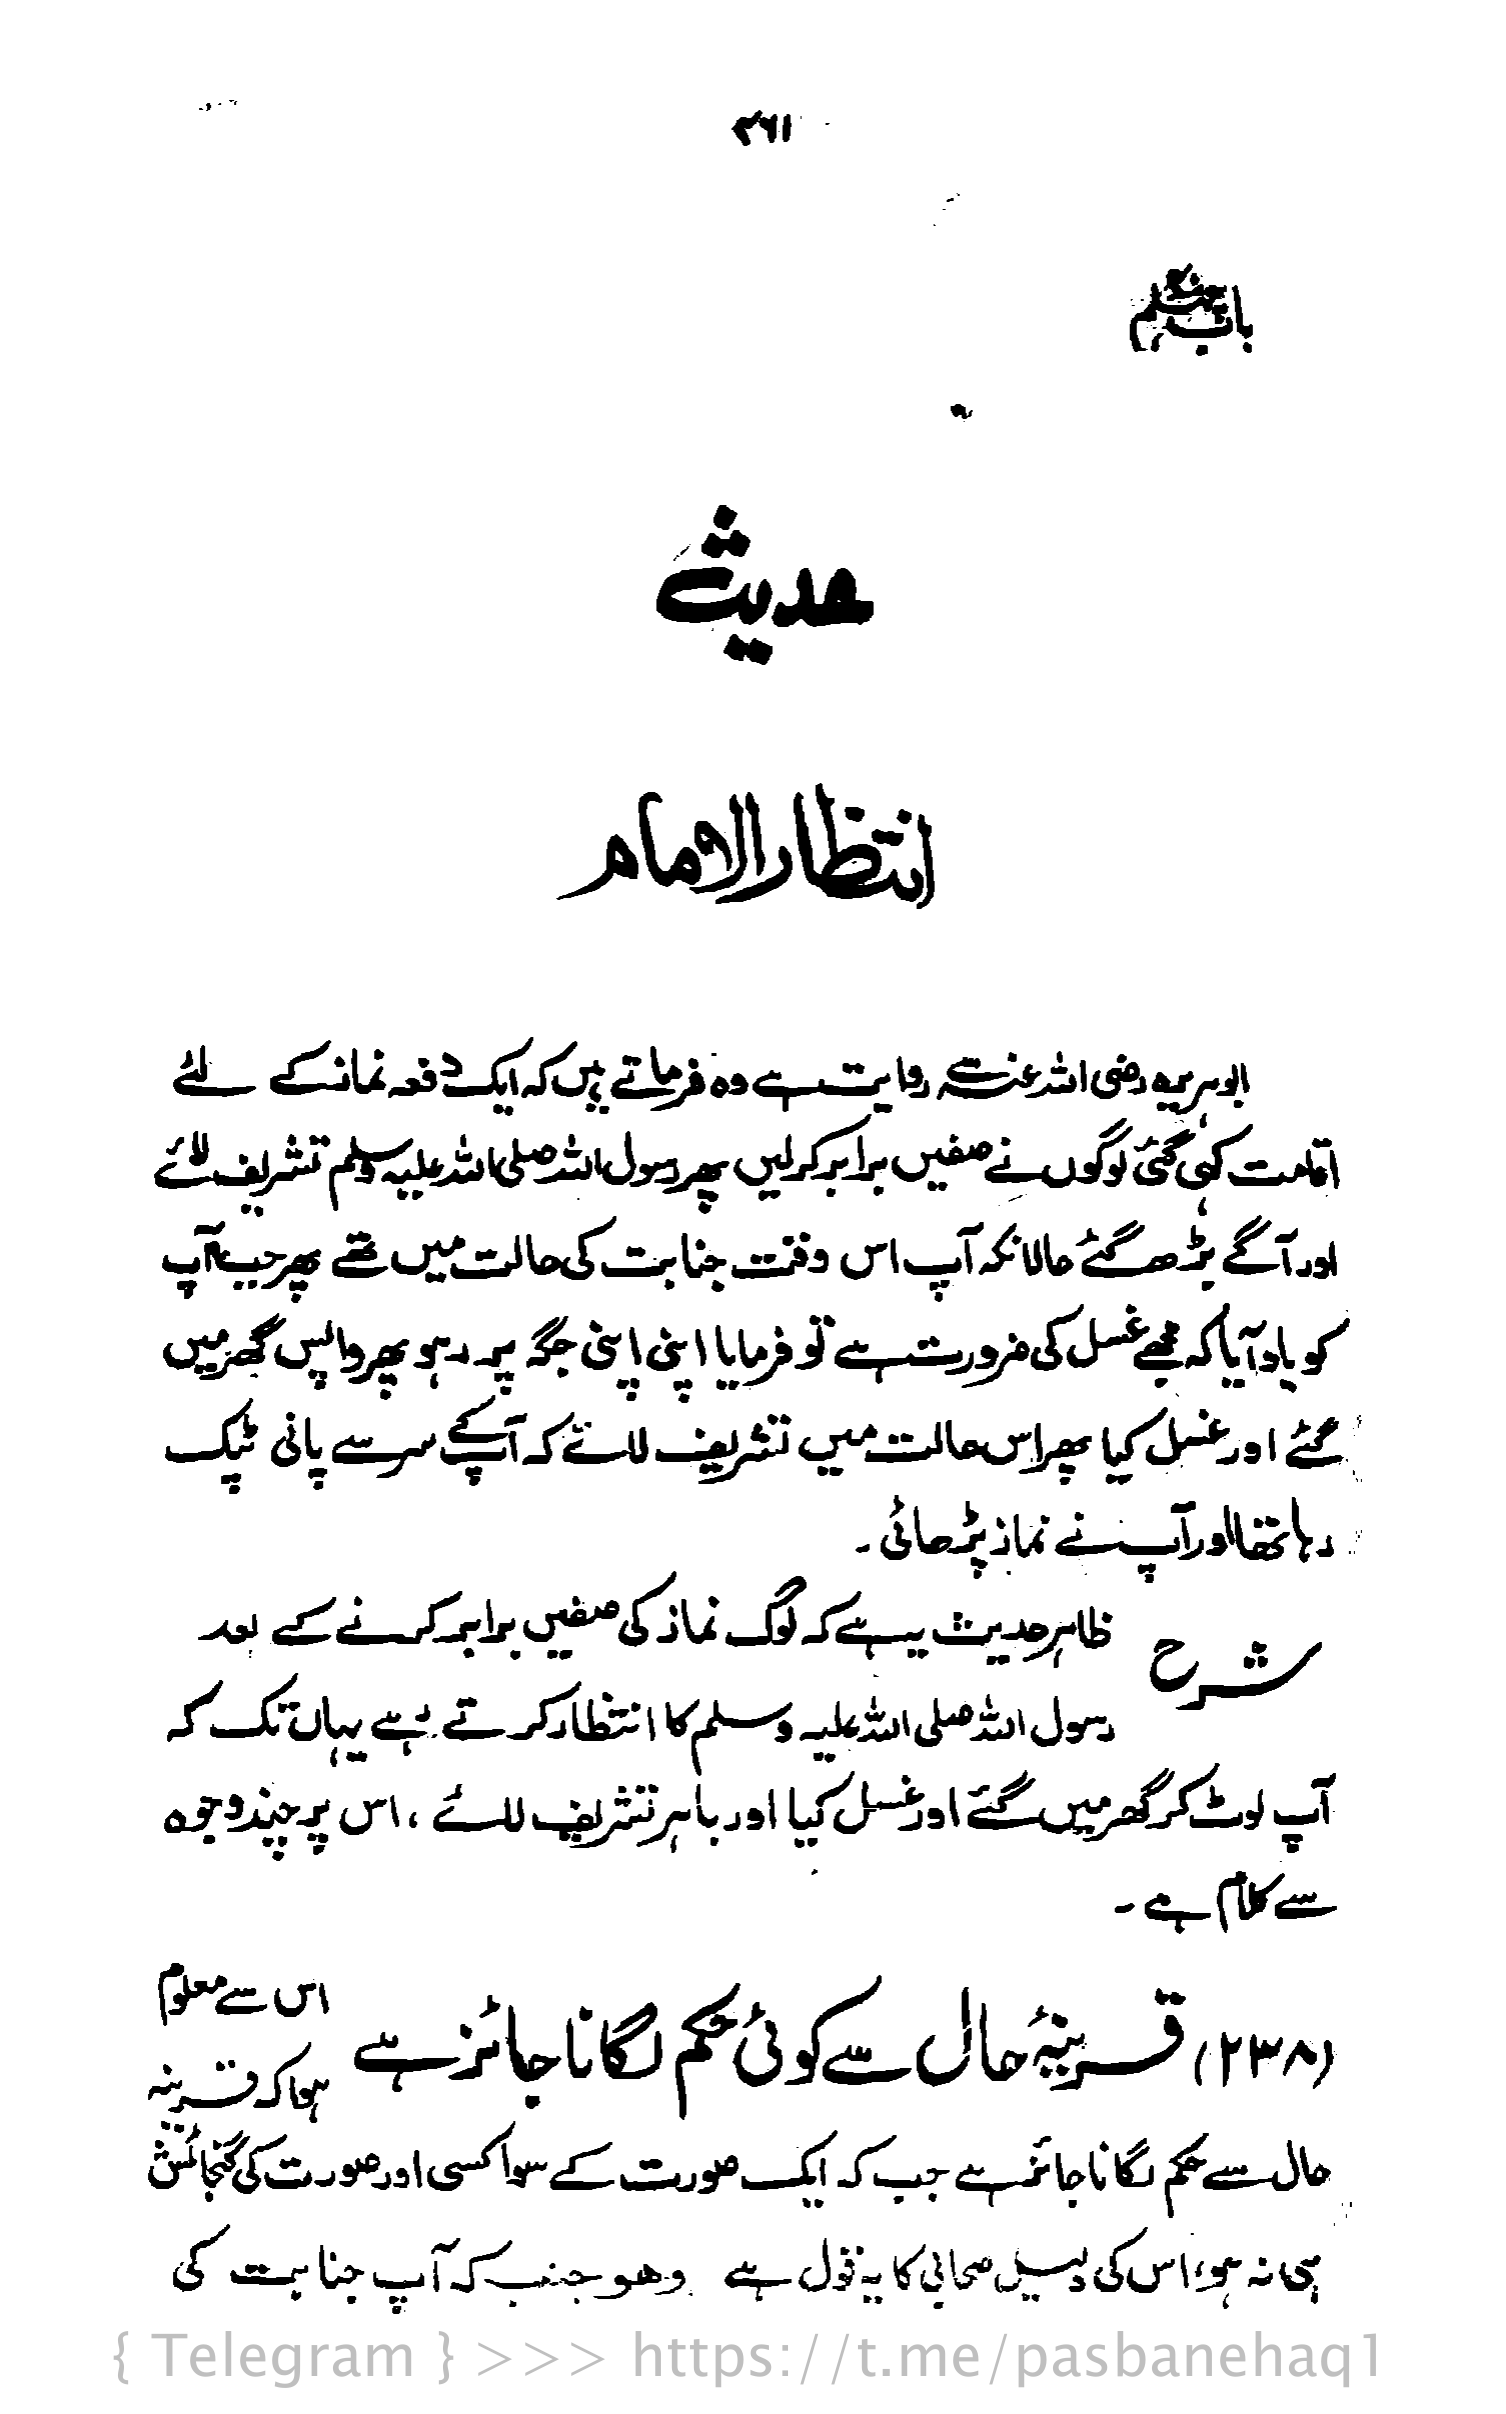 ۳۶۱
باب چہلم
حدیث
انتظار الامام
ابوہریرہ رضی اللہ عنہ سے روایت ہے وہ فرماتے ہیں کہ ایک دفعہ نماز کے لئے
اقامت کہی گئی لوگوں نے صفیں برابر کرلیں پھر رسول اللہ صلی اللہ علیہ وسلم تشریف لائے
اور آگے بڑھ گئے حالانکہ آپ اس وقت جنابت کی حالت میں تھے پھر جب آپ
کو یاد آیا کہ مجھے غسل کی ضرورت ہے تو فرمایا اپنی اپنی جگہ پر رہو پھر واپس گھر میں
گئے اور غسل کیا پھر اس حالت میں تشریف لائے کہ آپ کے سر سے پانی ٹپک
رہا تھا اور آپ نے نماز پڑھائی۔
شرح ظاہر حدیث یہ ہے کہ لوگ نماز کی صفیں برابر کرنے کے بعد
رسول اللہ صلی اللہ علیہ وسلم کا انتظار کرتے رہے یہاں تک کہ
آپ لوٹ کر گھر میں گئے اور غسل کیا اور باہر تشریف لائے، اس پر چند وجوہ
سے کلام ہے۔
(۲۳۸) قرینۂ حال سے کوئی حکم لگانا جائز ہے اس سے معلوم
ہوا کہ قرینہ
حال سے حکم لگانا جائز ہے جب کہ ایک صورت کے سوا کسی اور صورت کی گنجائش
ہی نہ ہو، اس کی دلیل صحابی کا یہ قول ہے وھو جنب کہ آپ جنابت کی
{ Telegram } >>> https://t.me/pasbanehaq1